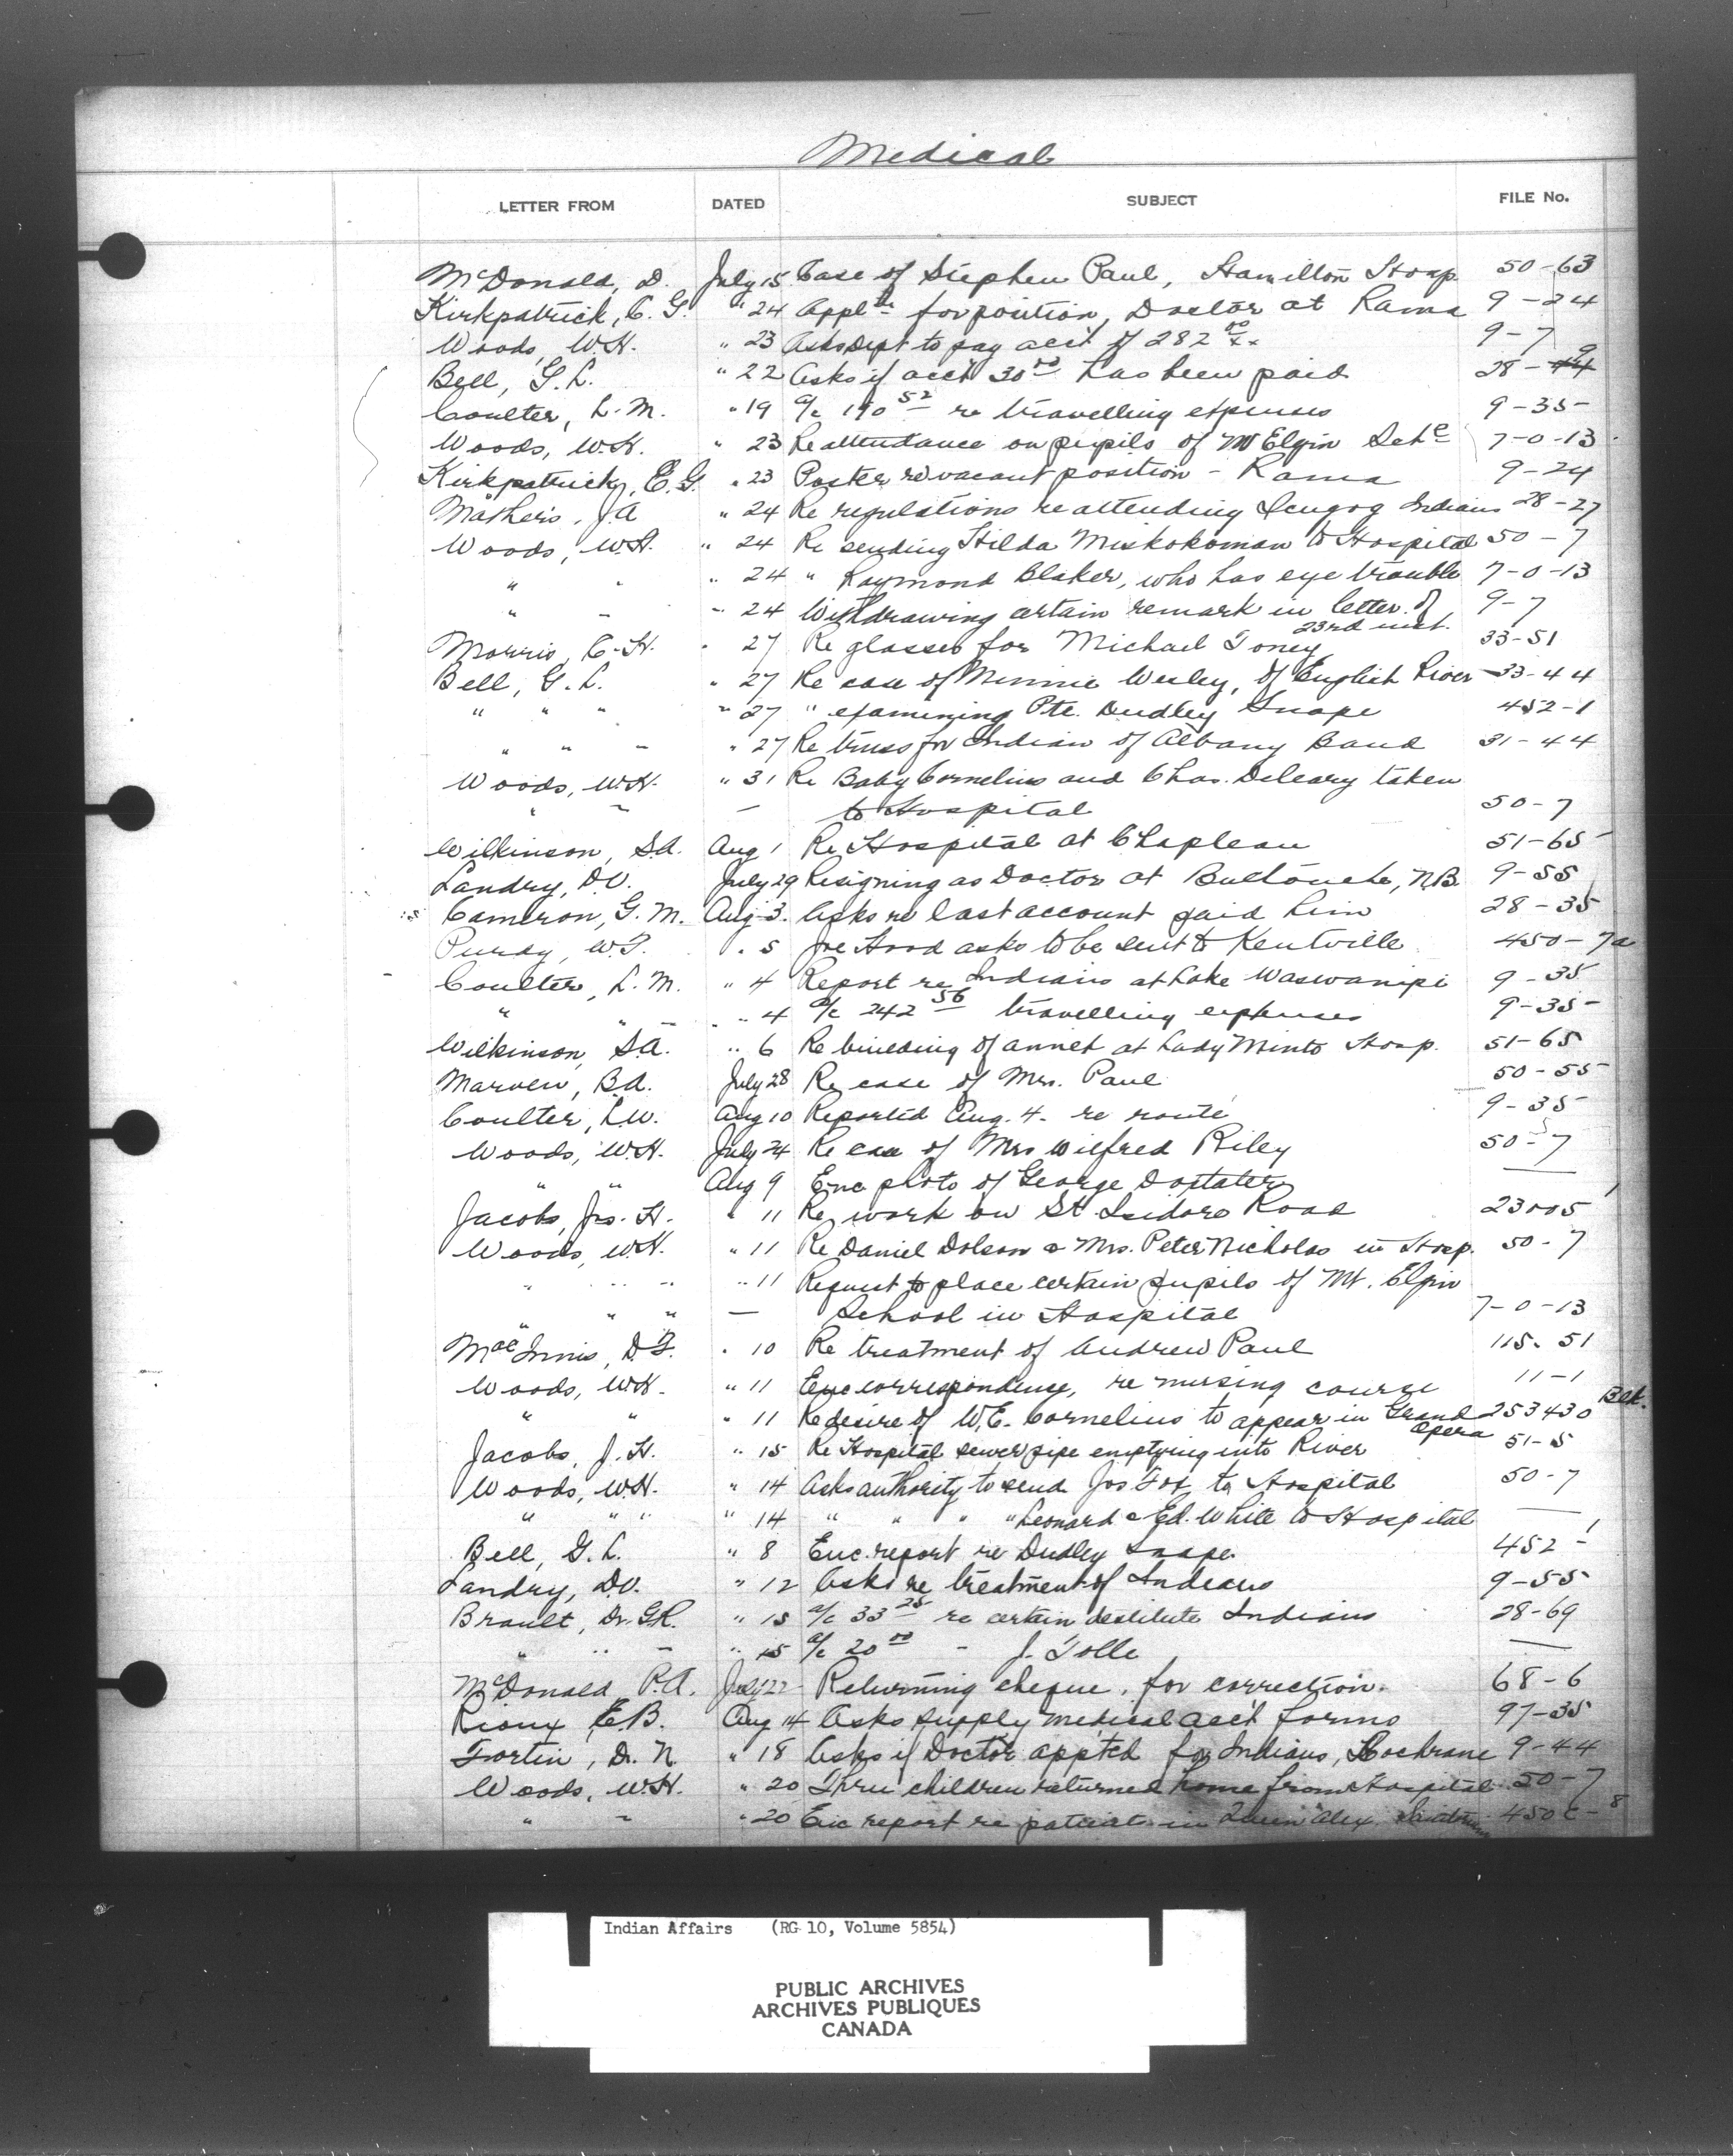 Medical
LETTER FROM DATED SUBJECT FILE No.
McDonald, D. July 15 Case of Stephen Paul, Hamilton Hosp. 50-63
Kirkpatrick, E. G. " 24 Appltn for position, Doctor at Rama 9-24
Woods, W.H. " 23 Asks Dept to pay acct of 282 00/xx 9-7
Bell, G. L. " 22 Asks if acct 30 00 has been paid 28-9
Coulter, L. M. " 19 a/c 190 52 re travelling expenses 9-35
Woods, W.H. " 23 Re attendance on pupils of Mt Elgin Schl 7-0-13
Kirkpatrick, E. G. " 23 Poster re vacant position - Rama 9-24
Mathers, J.A " 24 Re regulations re attending Scugog Indians 28-27
Woods, W.H. " 24 Re sending Hilda Miskokoman to Hospital 50-7
" " " 24 " Raymond Blaker, who has eye trouble 7-0-13
" " " 24 Withdrawing certain remark in letter of 23rd inst. 9-7
Morris, C.H. " 27 Re glasses for Michael Toney 33-51
Bell, G. L. " 27 Re case of Minnie Wesley, of English River 33-44
" " " " 27 " examining Pte. Dudley Snape 452-1
" " " " 27 Re truss for Indian of Albany Band 31-44
Woods, W.H. " 31 Re Baby Cornelius and Chas. Deleary taken
" " — to Hospital 50-7
Wilkinson, S.A. Aug 1 Re Hospital at Chapleau 51-65
Landry, D.V. July 29 Resigning as Doctor at Buctouche, N.B. 9-55
Cameron, G. M. Aug 3. Asks re last account paid him 28-35
Purdy, W.T. " 5 Joe Hood asks to be sent to Kentville 450-7a
Coulter, L. M. " 4 Report re Indians at Lake Waswanipi 9-35
" " " " 4 a/c 242 56 travelling expenses 9-35
Wilkinson, S.A. " 6 Re building of annex at Lady Minto Hosp. 51-65
Marven, B.A. July 28 Re case of Mrs. Paul 50-55
Coulter, L.W. Aug 10 Reported Aug. 4. re route 9-35
Woods, W.H. July 24 Re case of Mrs Wilfred Riley 50-7
" " Aug 9 Enc photo of George Doxtater —
Jacobs, Jos. H. " 11 Re work on St. Isidore Road 23005
Woods, W.H. " 11 Re Daniel Dolson & Mrs. Peter Nicholas in Hosp. 50-7
" " " " 11 Request to place certain pupils of Mt. Elgin
" " " — School in Hospital 7-0-13
MacInnis, D.F. " 10 Re treatment of Andrew Paul 115-51
Woods, W.H. " 11 Enc correspondence, re nursing course 11-1
" " " 11 Re desire of W.E. Cornelius to appear in Grand Opera 253430
Jacobs, J. H. " 15 Re Hospital sewer pipe emptying into River 51-5
Woods, W.H. " 14 Asks authority to send Jos Fox to Hospital 50-7
" " " " 14 " " " " Leonard & Ed. White to Hospital —
Bell, G. L. " 8 Enc. report re Dudley Snape. 452-1
Landry, D.V. " 12 Asks re treatment of Indians 9-55
Brault, Dr. G.R. " 15 a/c 33 25 re certain destitute Indians 28-69
" " " " 15 a/c 20 00 " J. Tolle —
McDonald R.A. July 22 Returning cheque, for correction. 68-6
Rioux E.B. Aug 14 Asks supply medical acct forms 97-35
Fortin, Dr. N. " 18 Asks if Doctor apptd for Indians, Cochrane 9-44
Woods, W.H. " 20 Three children returned home from Hospital 50-7
" " " 20 Enc report re patients in Queen Alex. Sanatorium 450C-8
Indian Affairs (RG 10, Volume 5854)
PUBLIC ARCHIVES
ARCHIVES PUBLIQUES
CANADA